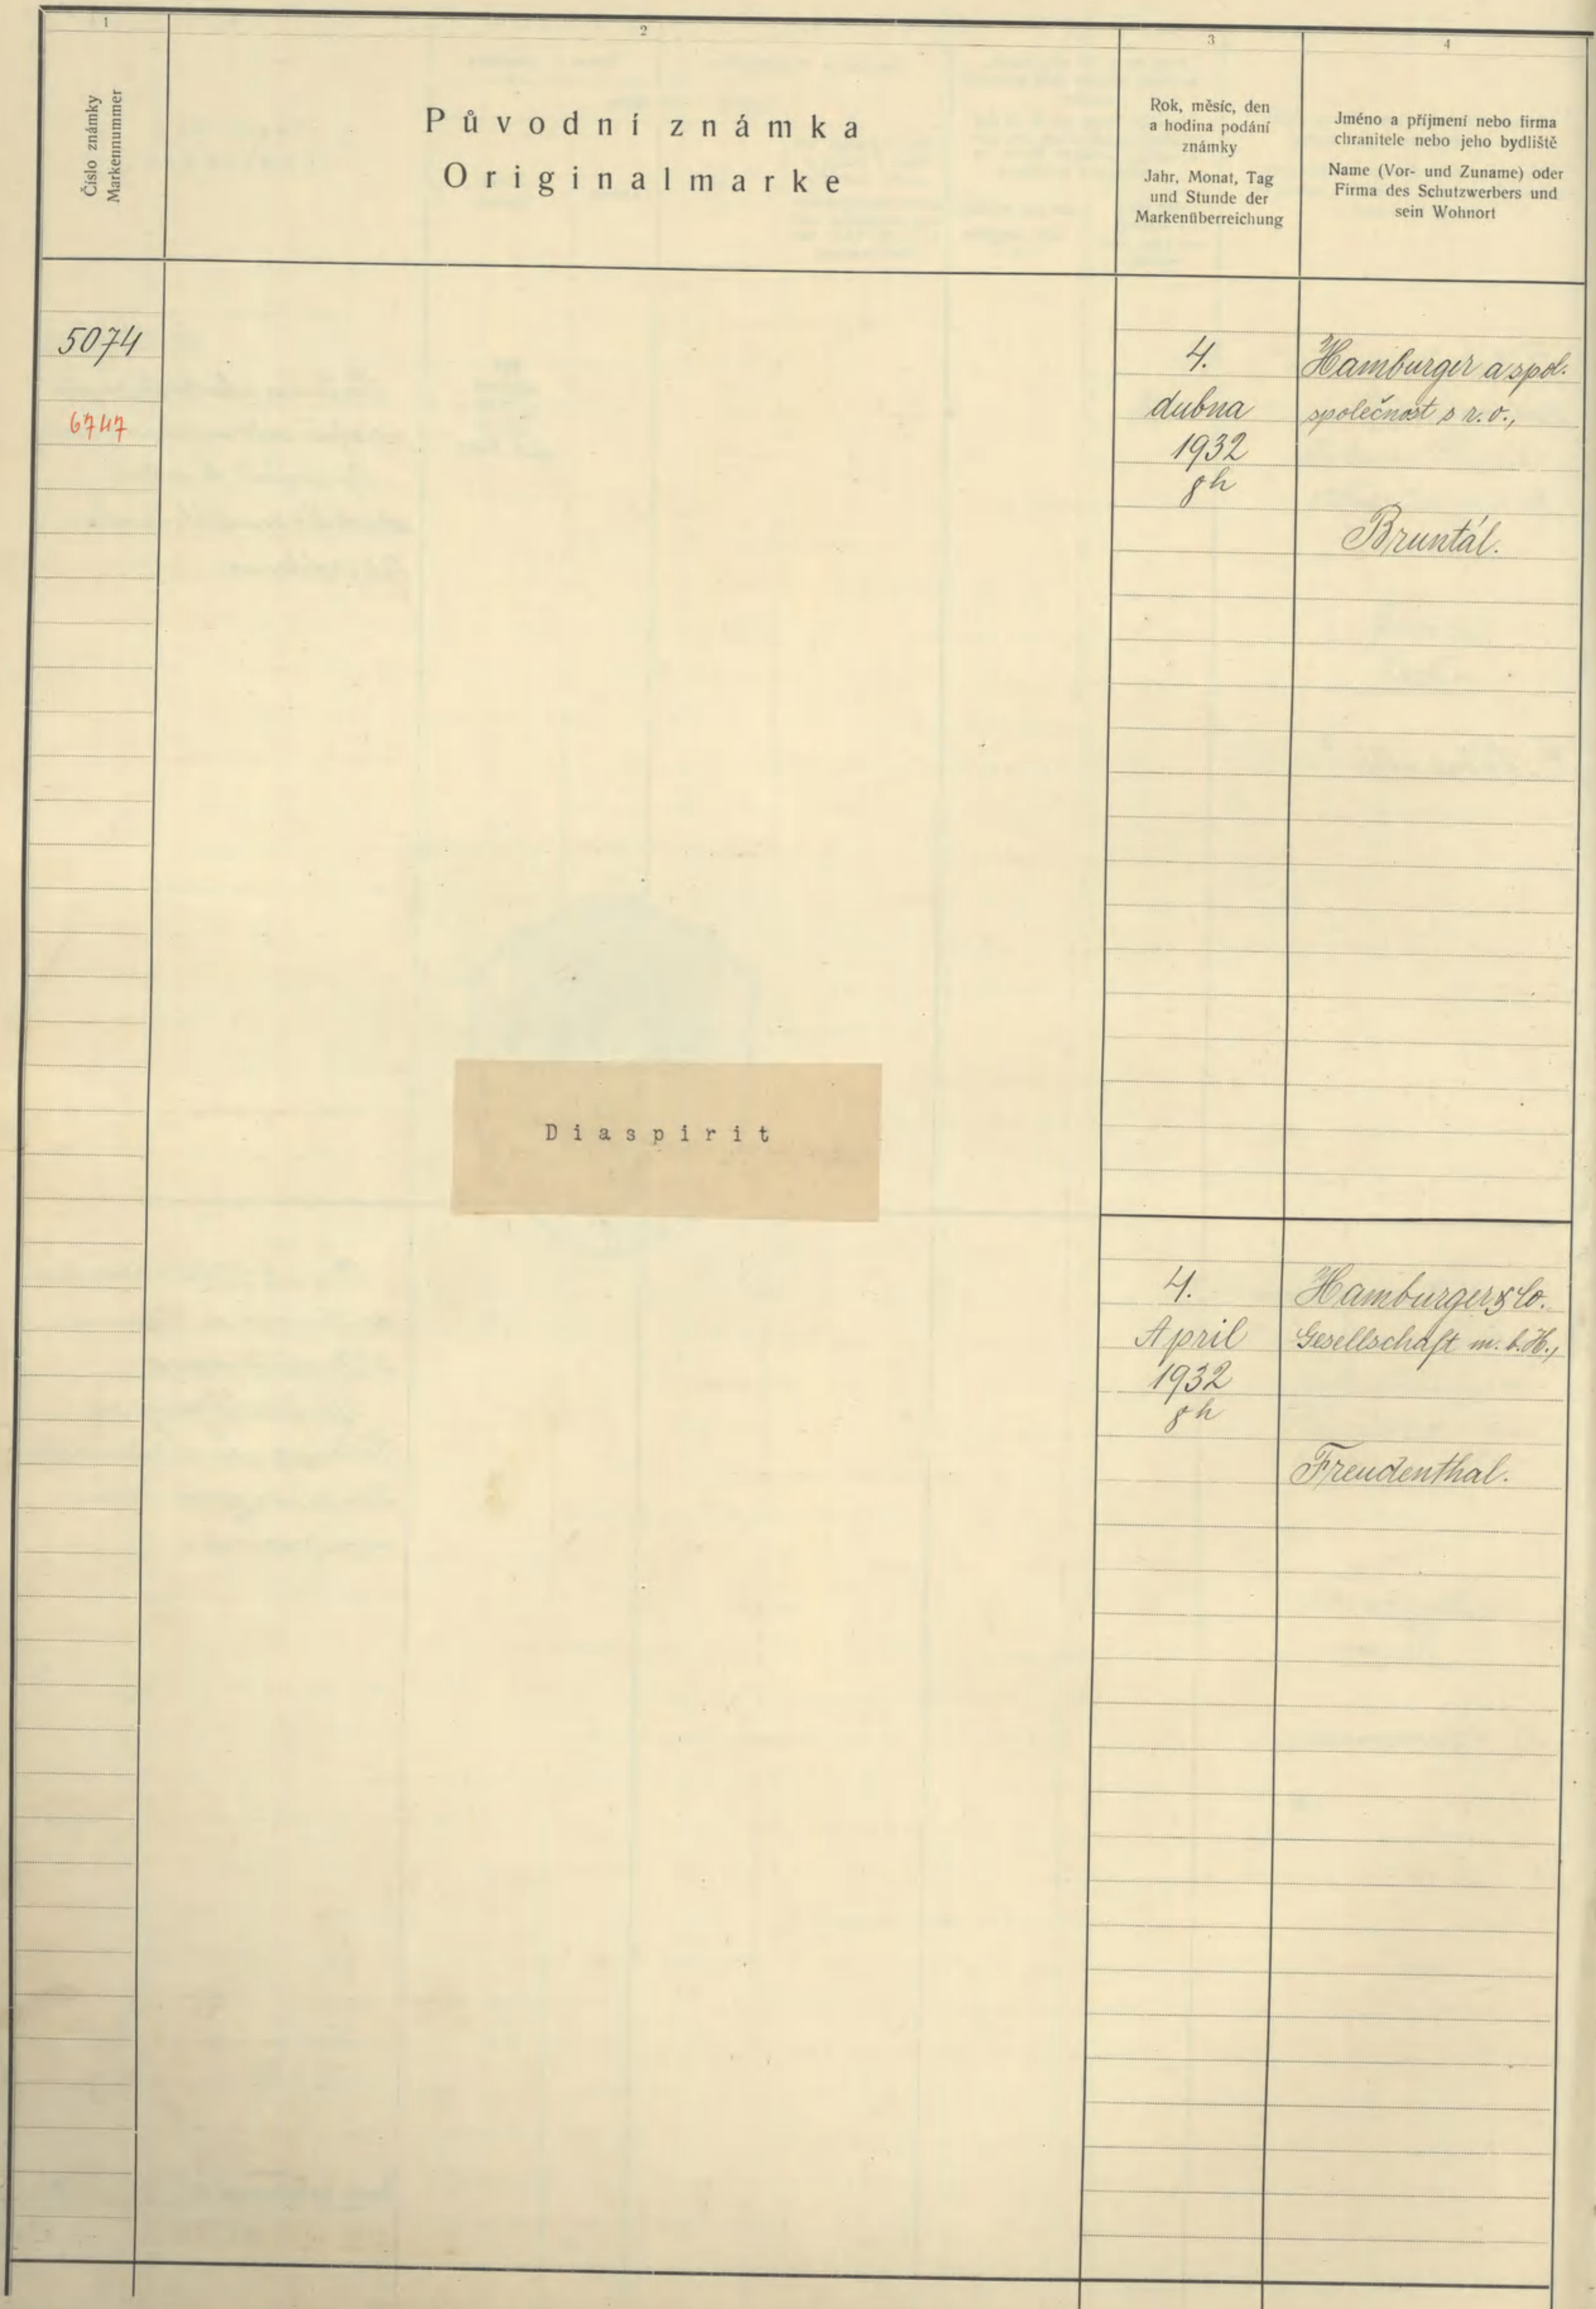 1
2
3
4
Číslo známky
Markennummer
Původní známka
Originalmarke
Rok, měsíc, den
a hodina podání
známky
Jahr, Monat, Tag
und Stunde der
Markenüberreichung
Jméno a příjmení nebo firma
chranitele nebo jeho bydliště
Name (Vor- und Zuname) oder
Firma des Schutzwerbers und
sein Wohnort
5074
6747
4.
dubna
1932
8h
Hamburger a spol.
společnost s r. o.,
Bruntál.
Diaspirit
4.
April
1932
8h
Hamburger & Co.
Gesellschaft m. b. H.,
Freudenthal.